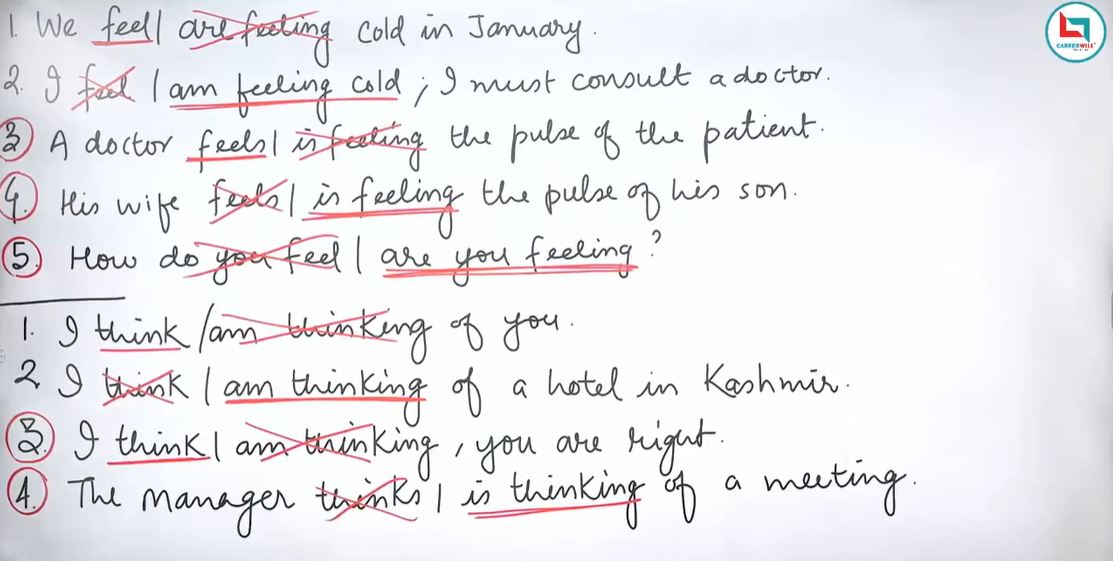 1. We feel | are feeling cold in January.
2. I feel | am feeling cold ; I must consult a doctor.
3 A doctor feels | is feeling the pulse of the patient.
4. His wife feels | is feeling the pulse of his son.
5. How do you feel | are you feeling ?
1. I think / am thinking of you.
2 I think | am thinking of a hotel in Kashmir.
3. I think | am thinking, you are right.
4. The manager thinks | is thinking of a meeting.
CAREERWILL